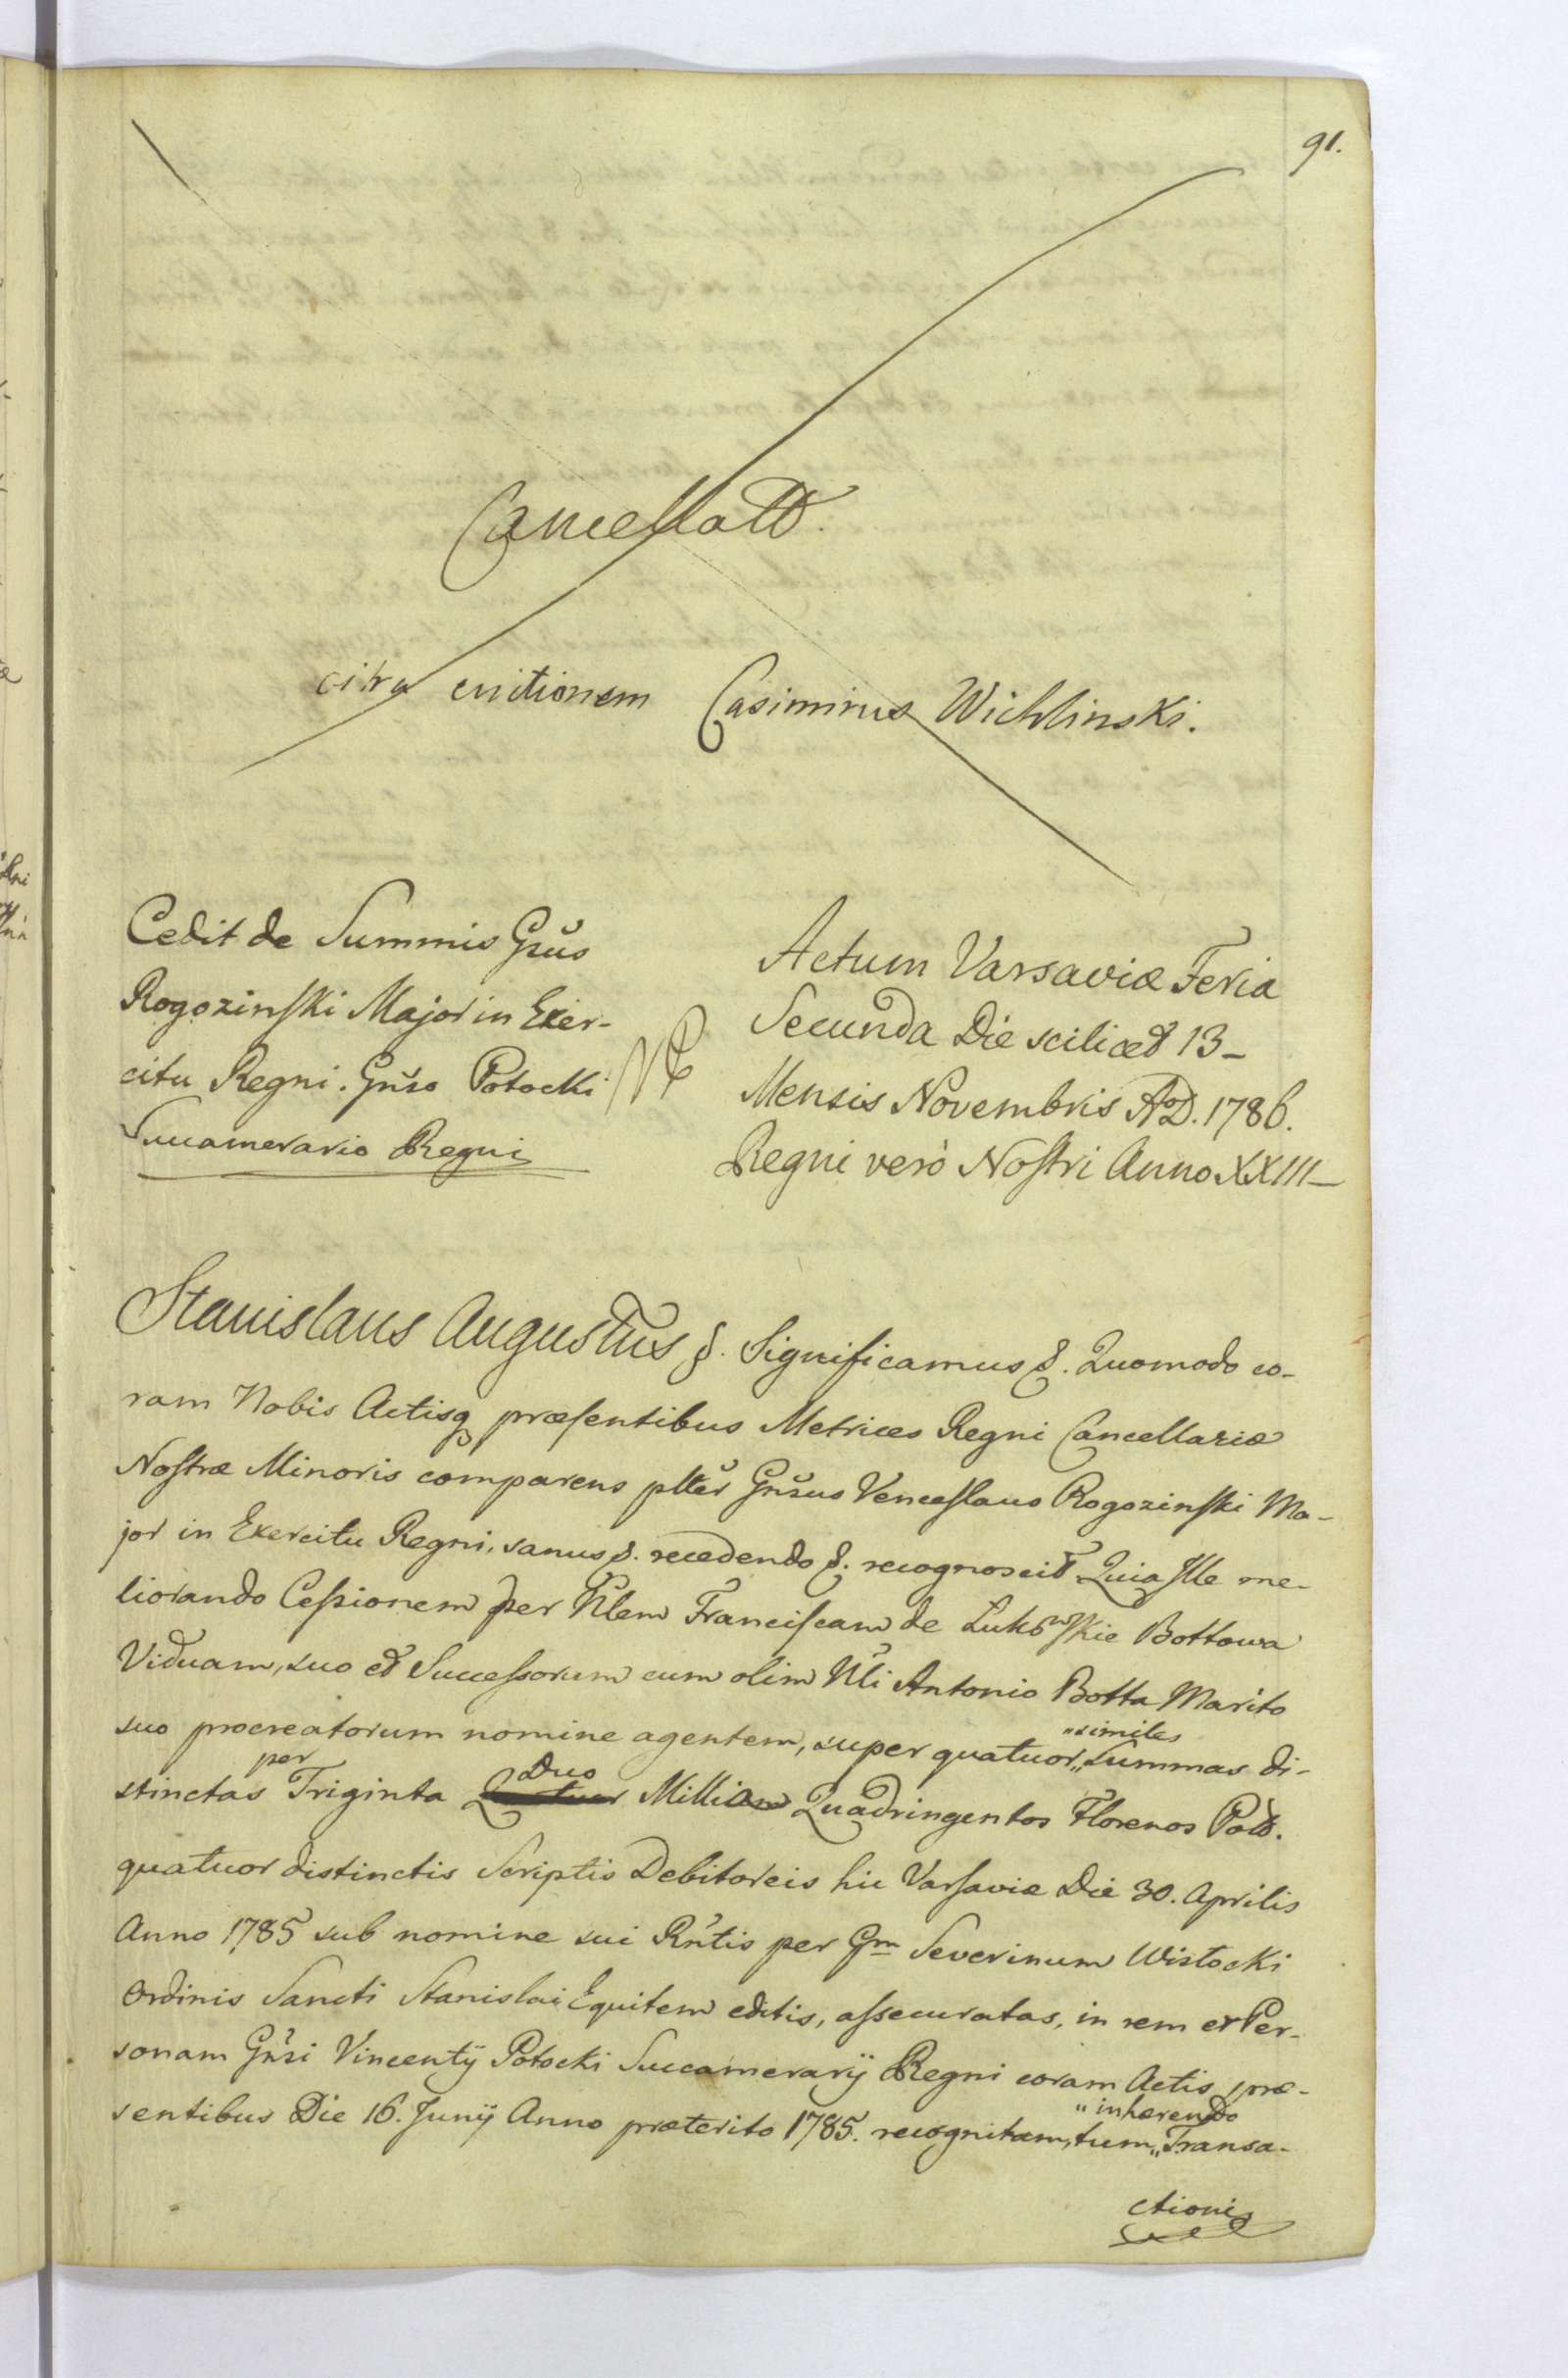 91.
Cancellatt.
citra evitionem Casimirus Wichlinski.
Cedit de Summis Gnsus
Rogozinski Major in Exer-
citu Regni. Gnso Potocki
Succamerario Regni
Actum Varsaviæ Feria
Secunda Die scilicet 13_
Mensis Novembris AoD. 1786.
Regni verò Nostri Anno XXIII_
Stanislaus Augustus &. Significamus &. Quomodo co-
ram Nobis Actisq præsentibus Metrices Regni Cancellariæ
Nostræ Minoris comparens pltĕr Gnsus Venceslaus Rogozinski Ma-
jor in Exercitu Regni, sanus &. recedendo &. recognoscit Quia Ille me-
liorando Cessionem per Nlem Franciscam de Lukowskie Bottowa
Viduam, suo et Successorum cum olim Nli Antonio Botta Marito
suo procreatorum nomine agentem, super quatuor „similes Summas di-
stinctas per Triginta Duo Millia Quadringentos Florenos Poll.
quatuor distinctis Scriptis Debitoreis hic Varsaviæ Die 30. Aprilis
Anno 1785 sub nomine sui Rntis per Gm Severinum Wistocki
Ordinis Sancti Stanislai Equitem editis, assecuratas, in rem et Per-
sonam Gnsi Vincentÿ Potocki Succamerarÿ Regni coram Actis præ-
sentibus Die 16. Junÿ Anno præterito 1785. recognitam, tum „inhærendo Transa-
ctioni